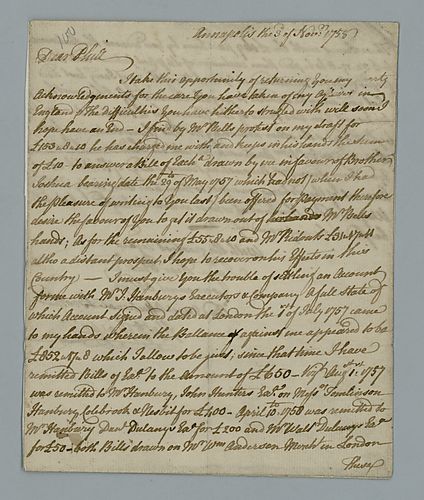 100
Annapolis the 3d of Novr. 1758
Dear Phill
I take this opportunity of returning You my
Acknowledgements for the care You have taken of my Affairs in
England & The difficulties You have hitherto strugled with will soon I
hope have an End — I find by Mr Bulls protest on my draft for
£153..8..10 he has charged me with and keeps in his hands the Sum
of £10.. to answer a Bill of Exch.a drawn by me in favour of Brother
Joshua bearing date the 29th of May 1757 which had not (when I had
the pleasure of writing to You last) been offered for Payment therefore
desire the favour of You to get it drawn out of Mr Bulls
hands; As for the remaining £55..8..10 and Mr
also a distant prospect I hope to recover on his Effects in this
Country — I must give You the trouble of settling an Account
for me with Mr J. Hanburys Executors & Company A full State of
which Account Signd and dated at London the 1st of July 1757 came
to my hands wherein the Ballance against me appeared to be
£852..17..8 which I allow to be just, since that time I have
remitted Bills of Exa. to the Amount of £650 — Vizt Augt 1. 1757
was remitted to Mr Hanbury, John Hunters Exa. on Messrs Tomlinson
Hanbury, Colebrook & Nesbit for £400 — April 10th 1758 was remitted to
Mr Hanbury Danl. Dulany Exa. for £200 and Mr Walt. Dulanys Exa.
for £50 — both Bills drawn on Mr Wm Anderson Mercht. in London
These